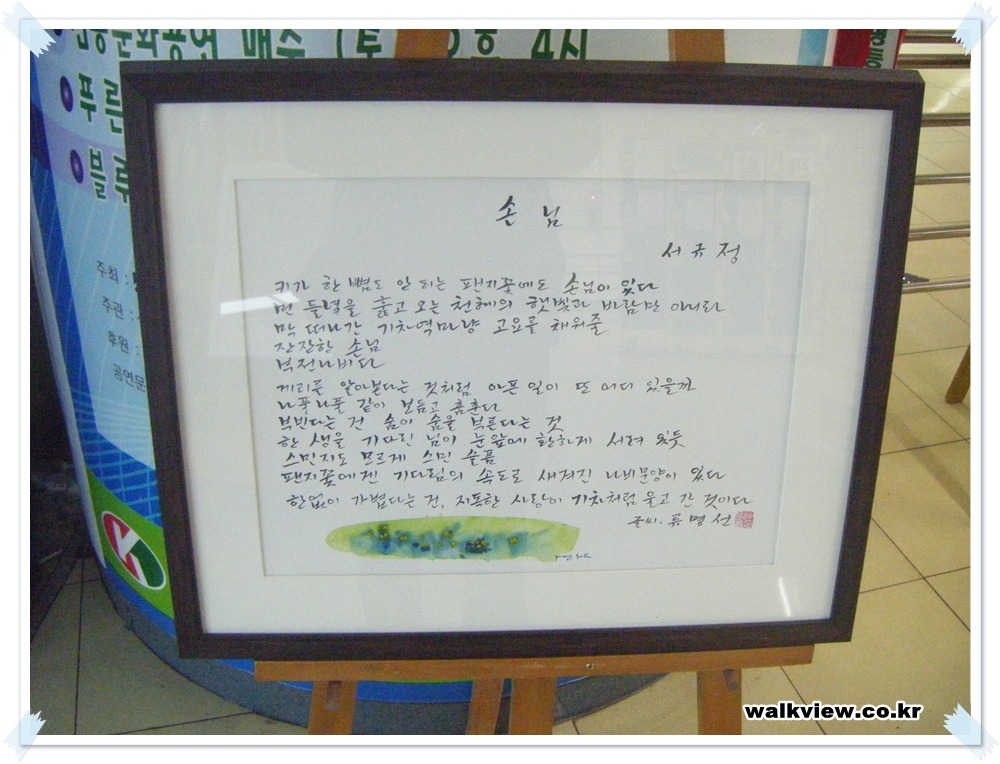 매주 (토) 오후 4시
푸른
블루
주최 :
주관 :
후원 :
공연문
손 님
서규정
키가 한 뼘도 안 되는 팬지꽃에도 손님이 있다
먼 들녘을 훑고 오는 천혜의 햇빛과 바람만 아니라
막 떠나간 기차역마냥 고요를 채워줄
잔잔한 손님
부전나비다
궤리를 알아본다는 것처럼 아픈 일이 또 어디 있을까
나풀나풀 같이 보듬고 춤춘다
부빈다는 건 숨이 숨을 부른다는 것
한 생을 기다린 님이 눈앞에 환하게 서려 있듯
스민지도 모르게 스민 슬픔
팬지꽃에겐 기다림의 속도로 새겨진 나비문양이 있다
한없이 가볍다는 건, 지독한 사랑이 기차처럼 울고 간 것이다
글씨. 류명선
walkview.co.kr